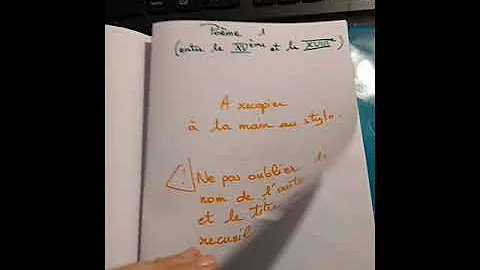 Poème 1
(entre le XVème et le XVIIIe)
A recopier
à la main au stylo.
! Ne pas oublier
nom de l'aute
et le titr
recueil